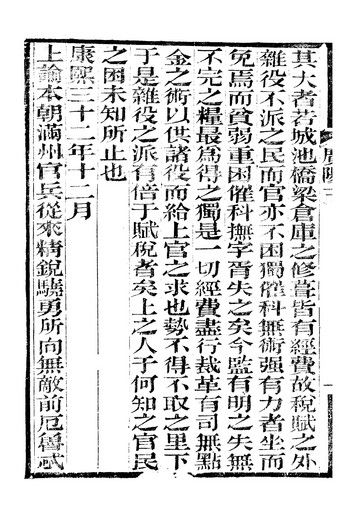 其大者若城池橋梁倉庫之修葺皆有經費故稅賦之外
雜役不派之民而官亦不困獨催科無術强有力者坐而
免焉而貧弱重困催科撫字胥失之矣今監有明之失無
不完之糧最為得之獨是一切經費盡行裁革有司無點
金之術以供諸役而給上官之求也勢不得不取之里下
于是雜役之派有倍于賦稅者矣上之人子何知之官民
之困未知所止也
康熙三十二年十二月
上諭本朝滿州官兵從來精銳驍勇所向無敵前厄魯忒